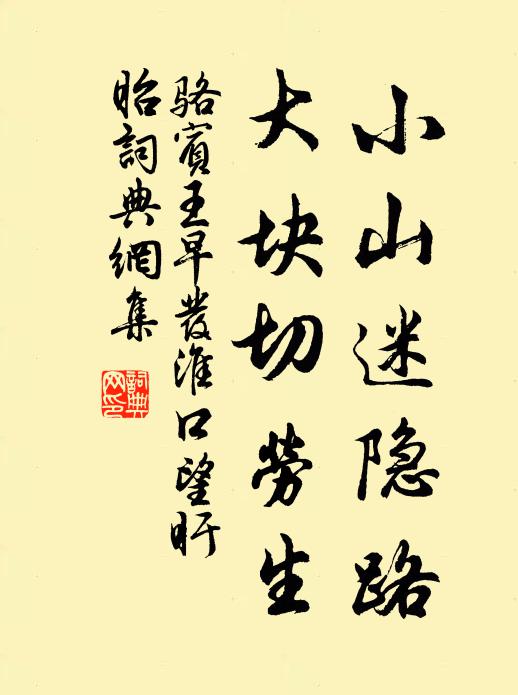 小山迷隐路
大块切勞生
骆賓王早發淮口望盱
眙詞典網集
詞典
网印